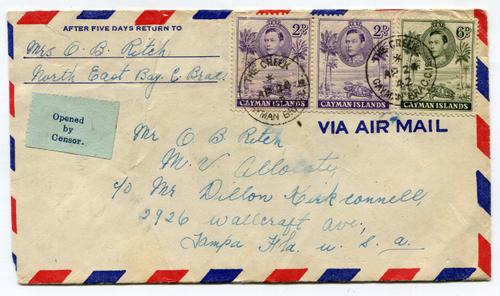 AFTER FIVE DAYS RETURN TO
Mrs O. B. Ritch
North East Bay C Brac
Opened
by
Censor.
2D
2D
6D
CAYMAN ISLANDS
CAYMAN ISLANDS
CAYMAN ISLANDS
THE CREEK
CAYMAN BRAC
THE CREEK
VIA AIR MAIL
Mr O B Ritch
M. V
c/o Mr Dillon Kirkconnell,
2926 Wallcraft Ave,
Tampa Fla. U. S. A.